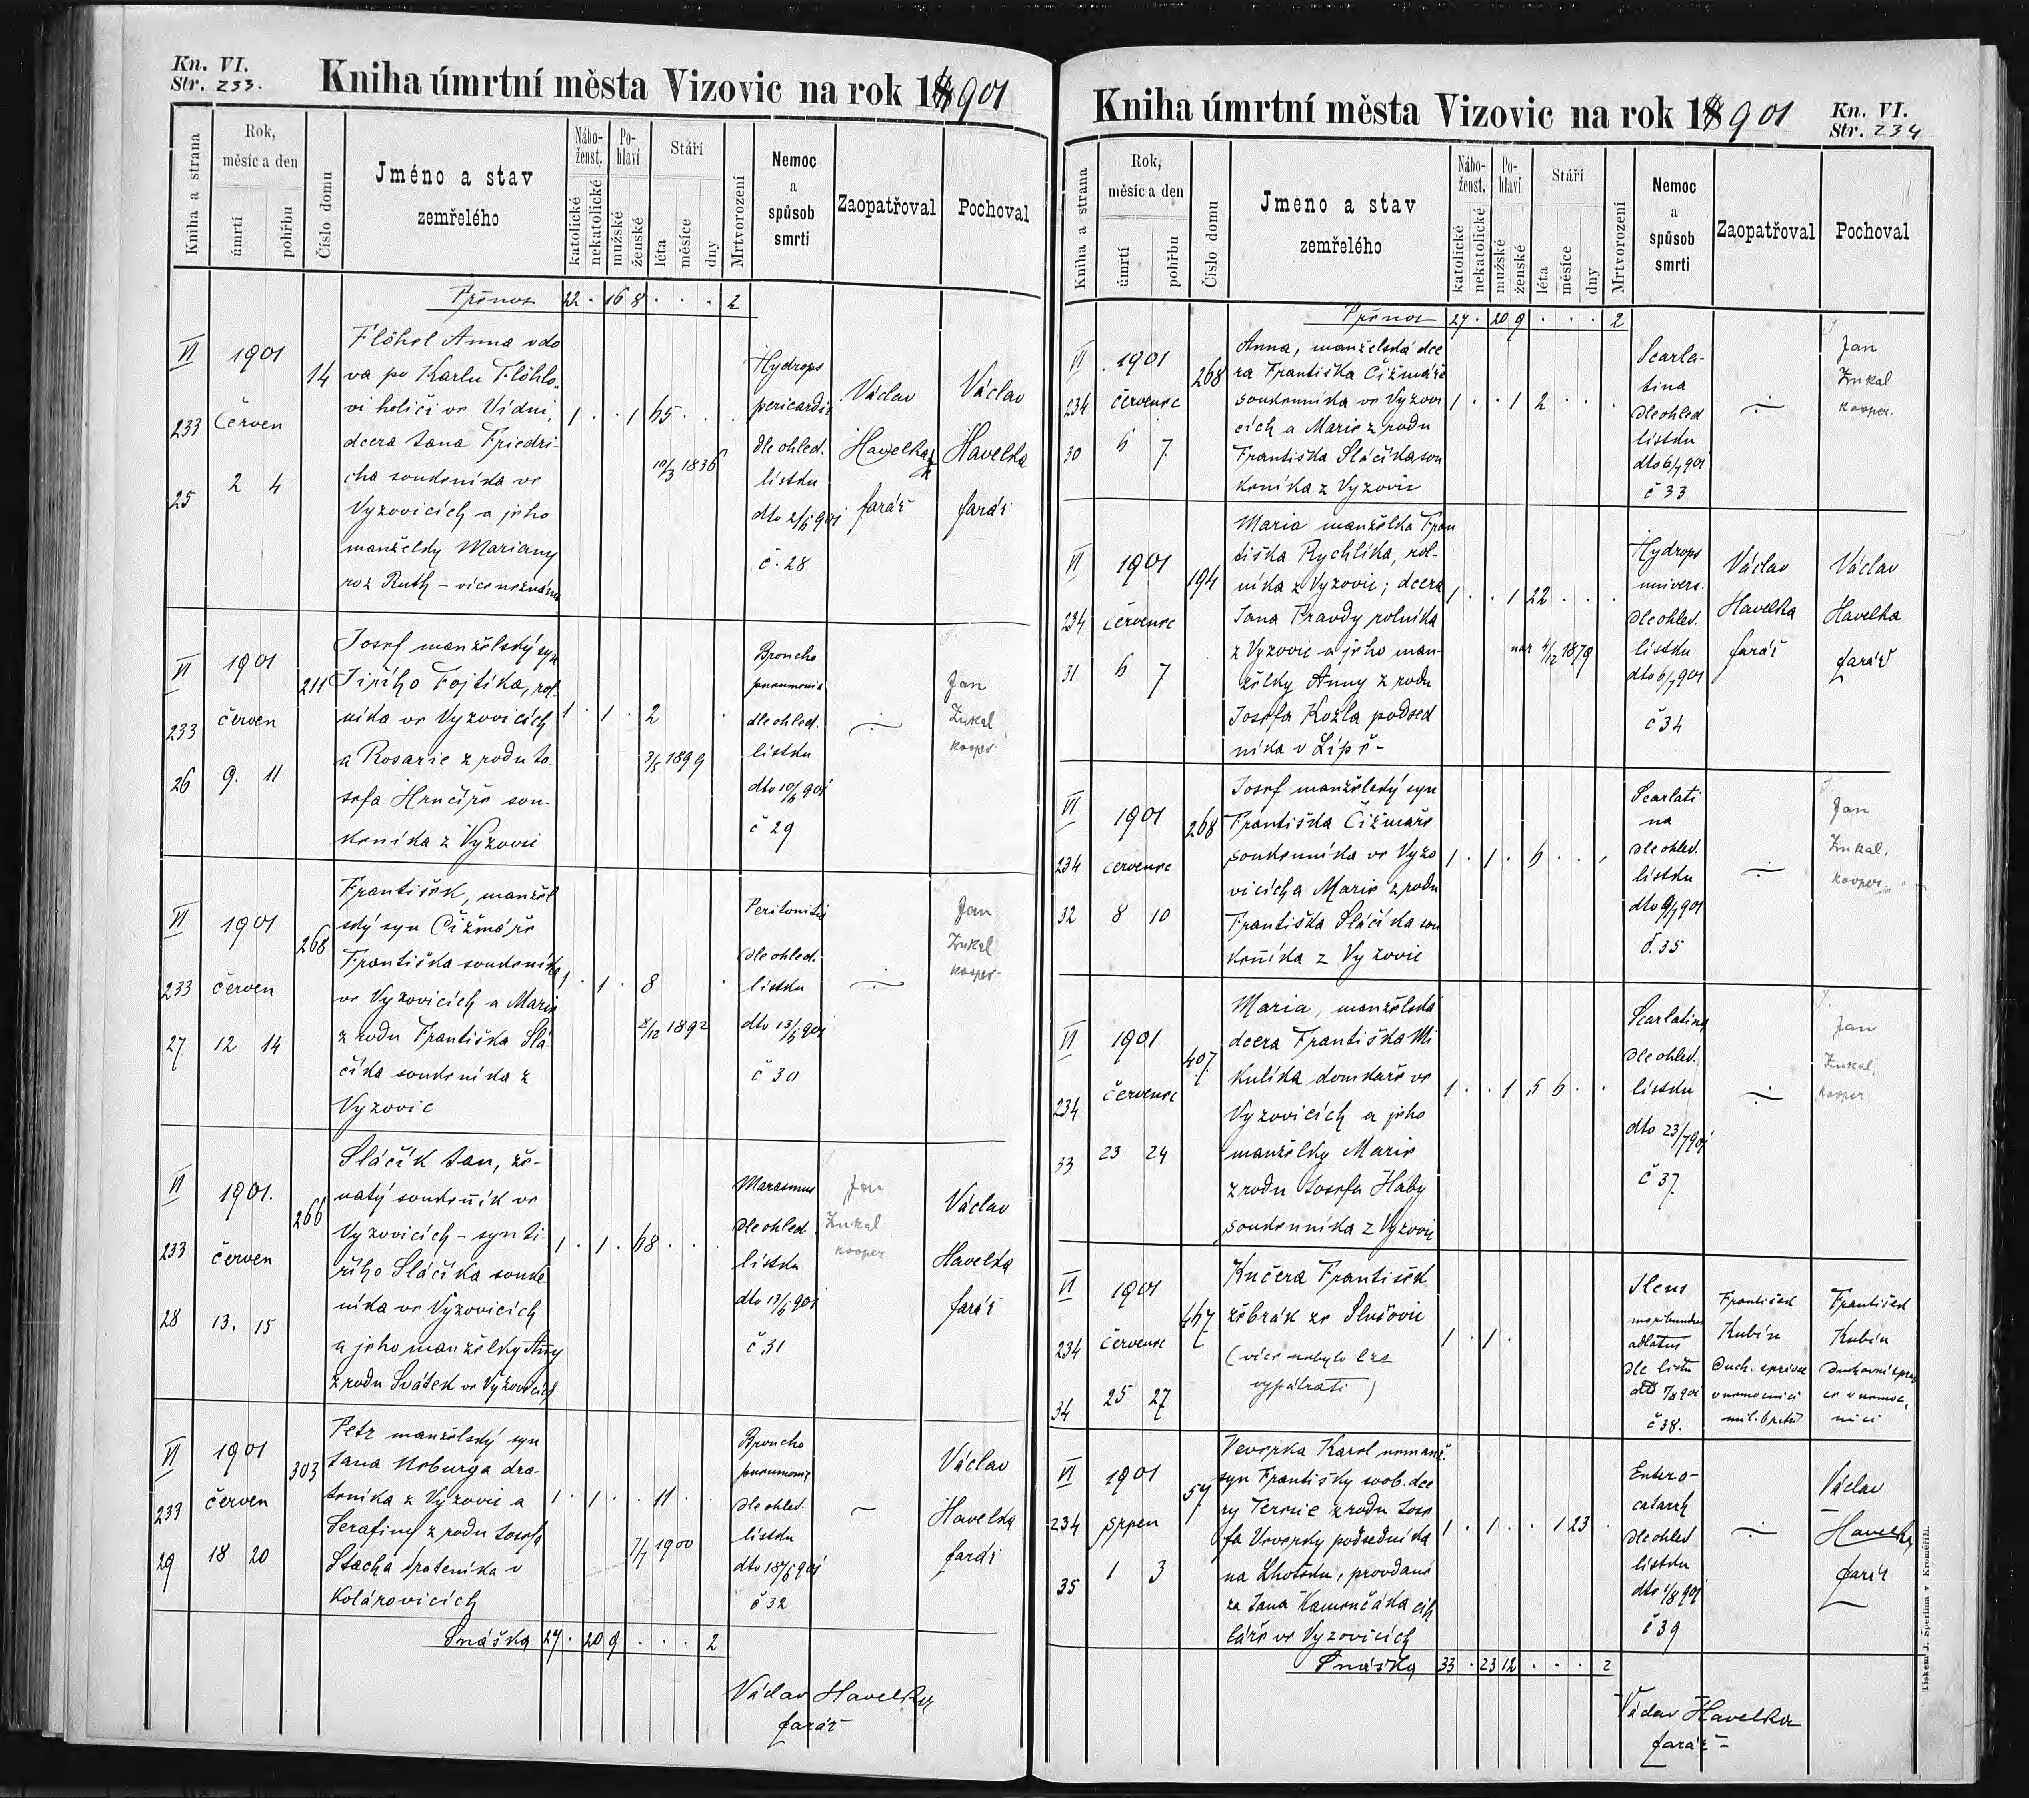 Kn. VI.
Str. 233.
Kniha úmrtní města Vizovic na rok 1901
Kniha a strana
Rok, měsíc a den
úmrtí
pohřbu
Číslo domu
Jméno a stav zemřelého
Nábo-ženst.
katolické
nekatolické
Po-hlaví
mužské
ženské
Stáří
léta
měsíce
dny
Mrtvorození
Nemoc a spůsob smrti
Zaopatřoval
Pochoval
Přenos 22 . 16 8 . . . 2
VI 233 25
1901 Červen 2 4
14
Flöhel Anna vdo
va po Karlu Flöhlo-
vi holiči ve Vídni,
dcera Jana Friedri-
cha soukeníka ve
Vyzovicích a jeho
manželky Mariany
roz Ruth – více neznámo
1 . . 1 65 . .
10/3 1836
Hydrops
pericardii
dle ohled.
lístku
dto 2/6 901
č. 28
Václav
Havelka
farář
Václav
Havelka
farář
VI 233 26
1901 červen 9. 11
211
Josef manželský syn
Jiřího Fojtíka, rol-
níka ve Vyzovicích
a Rosarie z rodu Jo-
sefa Hrnčíře sou-
keníka z Vyzovic
1 . 1 . 2 .
3/5 1899
Broncho
pneumonia
dle ohled.
lístku
dto 10/6 901
č 29
Jan
Zukal
kooper.
VI 233 27
1901 červen 12 14
268
František, manžel
ský syn Čižmáře
Františka soukeníka
ve Vyzovicích a Marie
z rodu Františka Slá
číka soukeníka z
Vyzovic
1 . 1 . 8 .
8/12 1892
Peritonitis
dle ohled.
lístku
dto 13/6 901
č 30
Jan
Zukal
kooper.
VI 233 28
1901. červen 13. 15
266
Sláčík Jan, že-
natý soukeník ve
Vyzovicích – syn Ji-
řího Sláčíka souke
níka ve Vyzovicích
a jeho manželky Anny
z rodu Svátek ve Vyzovicích
1 . 1 . 68 . . .
Marasmus
dle ohled.
lístku
dto 13/6 901
č 31
Jan
Zukal
kooper
Václav
Havelka
farář
VI 233 29
1901 červen 18 20
303
Petr manželský syn
Jana Norburga dra-
teníka z Vyzovic a
Serafiny z rodu Josefa
Stacha
Kolárovicích
1 . 1 . . 11 . .
7/7 1900
Broncho
pneumonie
dle ohled.
lístku
dto 18/6 901
č 32
Václav
Havelka
farář
Snáška 27 . 20 9 . . . 2
Václav Havelka
farář
Kniha úmrtní města Vizovic na rok 1901
Kn. VI.
Str. 234
Kniha a strana
Rok, měsíc a den
úmrtí
pohřbu
Číslo domu
Jmeno a stav zemřelého
Nábo-ženst.
katolické
nekatolické
Po-hlaví
mužské
ženské
Stáří
léta
měsíce
dny
Mrtvorození
Nemoc a spůsob smrti
Zaopatřoval
Pochoval
Přenos 27 . 20 9 . . . 2
VI 234 30
1901 červenec 6 7
268
Anna, manželská dce
ra Františka Čižmáře
soukenníka ve Vyzovi
cích a Marie z rodu
Františka Sláčíka sou
keníka z Vyzovic
1 . . 1 2 . . .
Scarla-
tina
dle ohled
lístku
dto 6/7 901
č 33
Jan
Zukal
kooper.
VI 234 31
1901 červenec 6 7
194
Maria manželka Fran
tiška Rychlíka, rol-
níka z Vyzovic; dcera
Jana Pravdy rolníka
z Vyzovic a jeho man-
želky Anny z rodu
Josefa Kozla podsed
níka v Lípě –
1 . . 1 22 . . .
nar 4/12 1879
Hydrops
univers.
dle ohled.
lístku
dto 6/7 901
č 34
Václav
Havelka
farář
Václav
Havelka
farář
VI 234 32
1901 červenec 8 10
268
Josef manželský syn
Františka Čižmáře
soukenníka ve Vyzo
vicích a Marie z rodu
Františka Sláčíka sou
keníka z Vyzovic
1 . 1 . 6 . . .
Scarlati
na
dle ohled.
lístku
dto 9/7 901
č. 35
Jan
Zukal.
kooper.
VI 234 33
1901 červenec 23 24
407
Maria, manželská
dcera Františka Mi
kulíka domkaře ve
Vyzovicích a jeho
manželky Marie
z rodu Josefa Haby
soukenníka z Vyzovic
1 . . 1 5 6 . .
Scarlatina
dle ohled.
lístku
dto 23/7 901
č 37.
Jan
Zukal.
kooper
VI 234 34
1901 červenec 25 27
467
Kučera František
žebrák ze Slušovic
(více nebylo lze
vypátrati)
1 . 1 .
Ileus
moribundus
adlatus
dle lístu
dto 7/8 901
č 38.
František
Kubín
Duch. správce
v nemocnici
milibratří
František
Kubín
duchovní správ
ce v nemoc.
nici
VI 234 35
1901 srpen 1 3
57
Veverka Karel nemanž.
syn Františky svob. dce
ry Terezie z rodu Jose
fa Veverky podsedníka
na Lhotsku, provdané
za Jana Kamenčáka cih
láře ve Vyzovicích
1 . 1 . . 1 23 .
Entero-
catarrh
dle ohled
lístku
dto 1/8 901
č 39
Václav
Havelka
farář
Snáška 33 . 23 12 . . . 2
Václav Havelka
farář –
Tiskem J. Šperlina v Kroměříži.